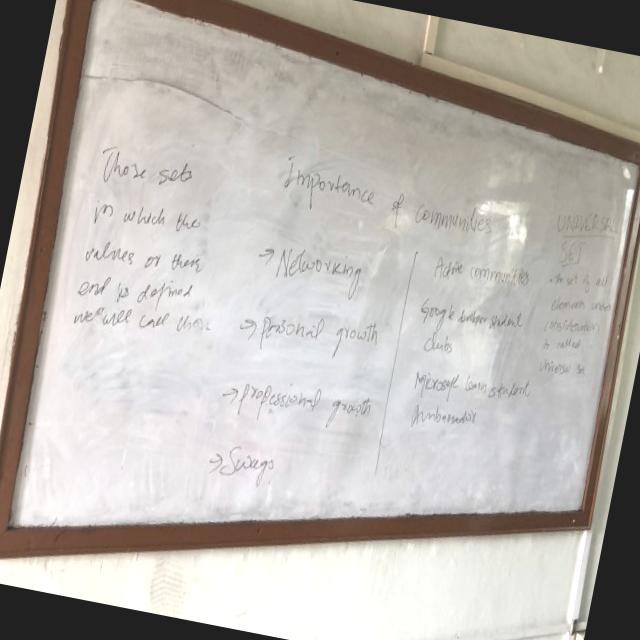 Those sets
in which the
values or their
end is defined
we will call those
Importance of communities
→ Networking
→ Personal growth
→ professional growth
→ Swags
Active communities
Google student
clubs
Microsoft learn student
Ambassador
UNIVERSAL
SET
set of all
elements under
consideration
is called
universal set